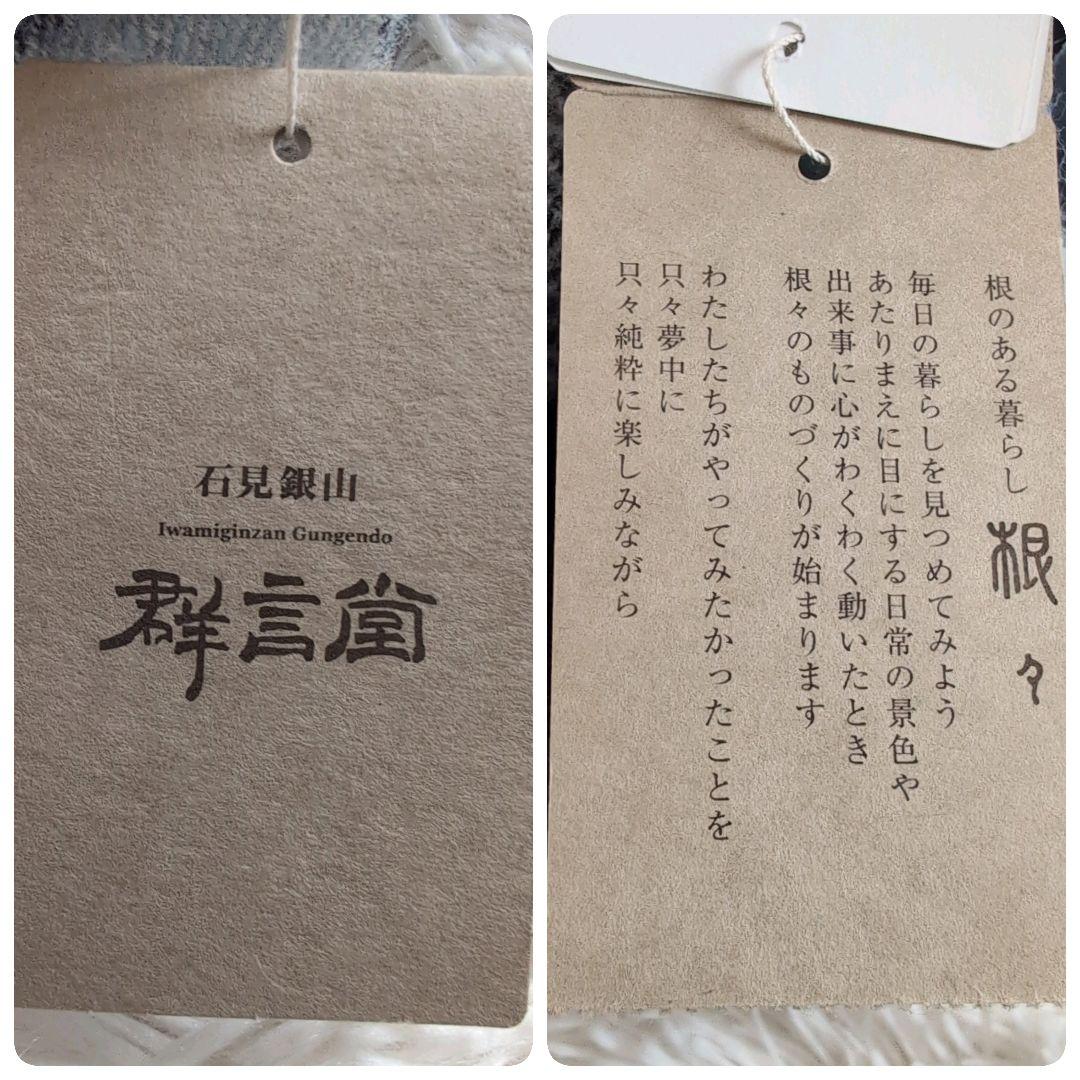 石見銀山
Iwamiginzan Gungendo
群言堂
根のある暮らし 根々
毎日の暮らしを見つめてみよう
あたりまえに目にする日常の景色や
出来事に心がわくわく動いたとき
根々のものづくりが始まります
わたしたちがやってみたかったことを
只々夢中に
只々純粋に楽しみながら